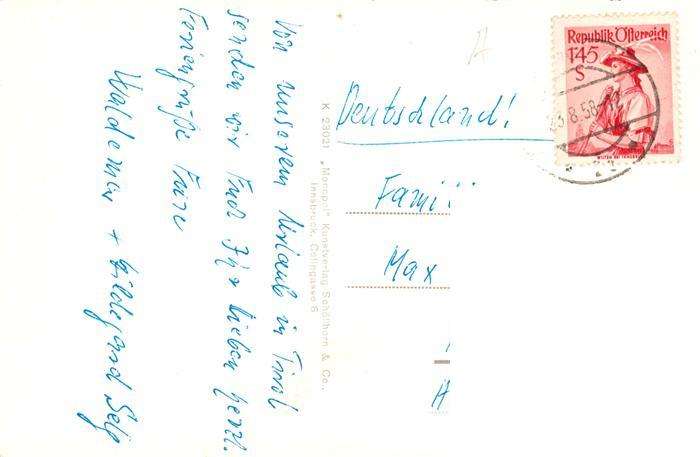 Von unserem Urlaub in Tirol
senden wir Euch Ihr Lieben herzl.
Feriengrüße Eure
Waldemar + Hildegard
K 23021 „Monopol" Kunstverlag Schöllhorn & Co.,
Innsbruck, Colingasse 6
Deutschland!
Fami
Max
Republik Österreich
1·45
S
8.58